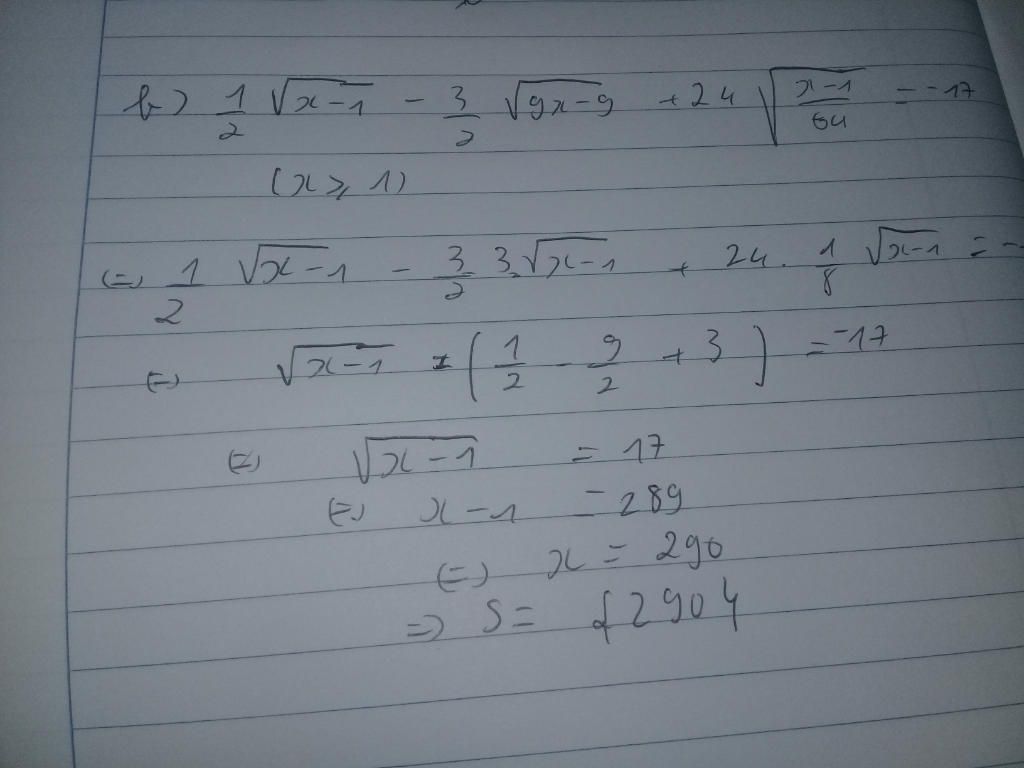 b) 1/2 √(x-1) - 3/2 √(9x-9) + 24 √((x-1)/64) = -17
(x ⩾ 1)
(=) 1/2 √(x-1) - 3/2 3.√(x-1) + 24 . 1/8 √(x-1) = -
(=) √(x-1) (1/2 - 9/2 + 3) = -17
(=) √(x-1) = 17
(=) x-1 = 289
(=) x = 290
=) S = {290}